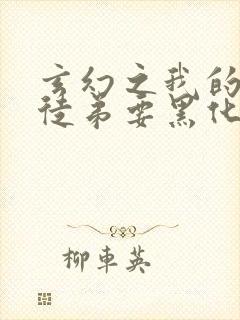 玄幻之我的
徒弟要黑化
柳車英